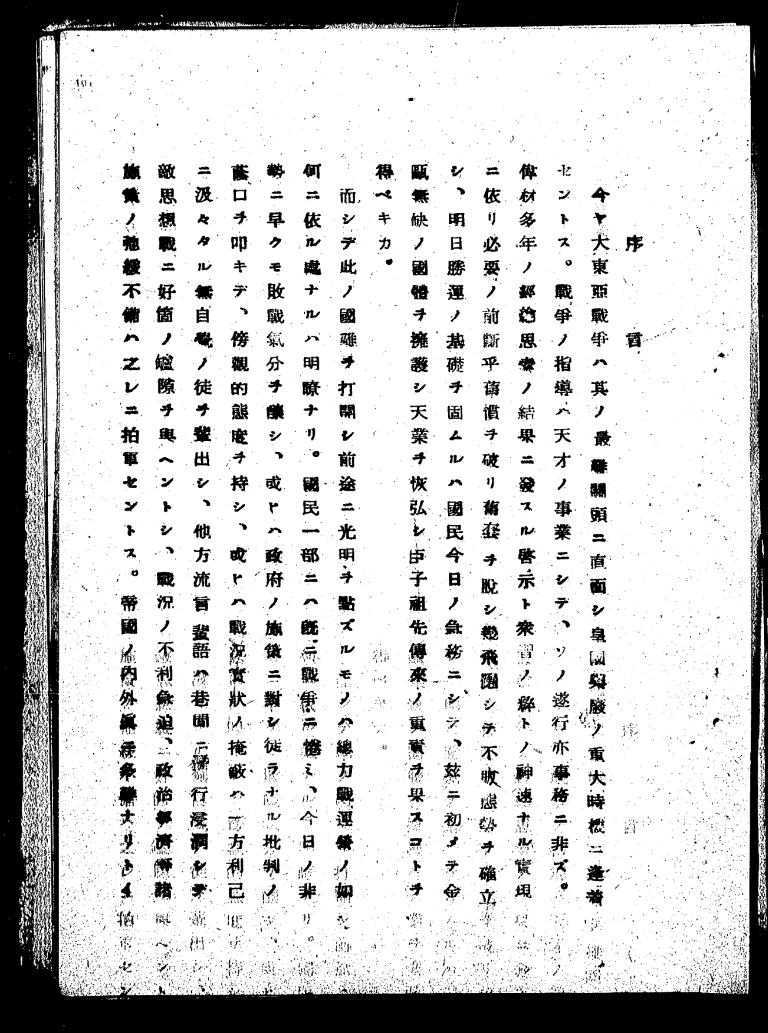 序言
今ヤ大東亞戰爭ハ其ノ最難關頭ニ直面シ皇國興廢ノ重大時機ニ逢着
セントス。戰爭ノ指導ハ天才ノ事業ニシテ、ソノ遂行亦事務ニ非ズ。
偉材多年ノ經綸思索ノ結果ニ發スル啓示ト衆習ノ ノ神速ナル實現
ニ依リ必要ノ前斷乎舊慣ヲ破リ舊套ヲ脫シ 飛躍シテ不敗態勢ヲ確立
シ、明日勝運ノ基礎ヲ固ムルハ國民今日ノ急務ニシテ、玆ニ初メテ金
甌無缺ノ國體ヲ擁護シ天業ヲ恢弘シ臣子祖先傳來ノ重責ヲ果スコトヲ
得ベキカ。
而シテ此ノ國難ヲ打開シ前途ニ光明ヲ點ズルモノハ總力戰運營ノ如
何ニ依ル處ナルハ明瞭ナリ。國民一部ニハ既ニ戰爭ニ倦ミ、今日ノ非
勢ニ早クモ敗戰氣分ヲ釀シ、或ヒハ政府ノ施策ニ對シ徒ラナル批判ノ
蔭口ヲ叩キテ、傍觀的態度ヲ持シ、或ヒハ戰況實狀ノ掩蔽ハ一方利己
ニ汲々タル無自覺ノ徒ヲ輩出シ、他方流言蜚語ハ巷間ニ橫行浸潤シテ
敵思想戰ニ好箇ノ 隙ヲ與ヘントシ、戰況ノ不利急迫、政治經濟等諸
施策ノ弛緩不備ハ之レニ拍車セントス。帝國ノ內外眞ニ多難ナリトイ